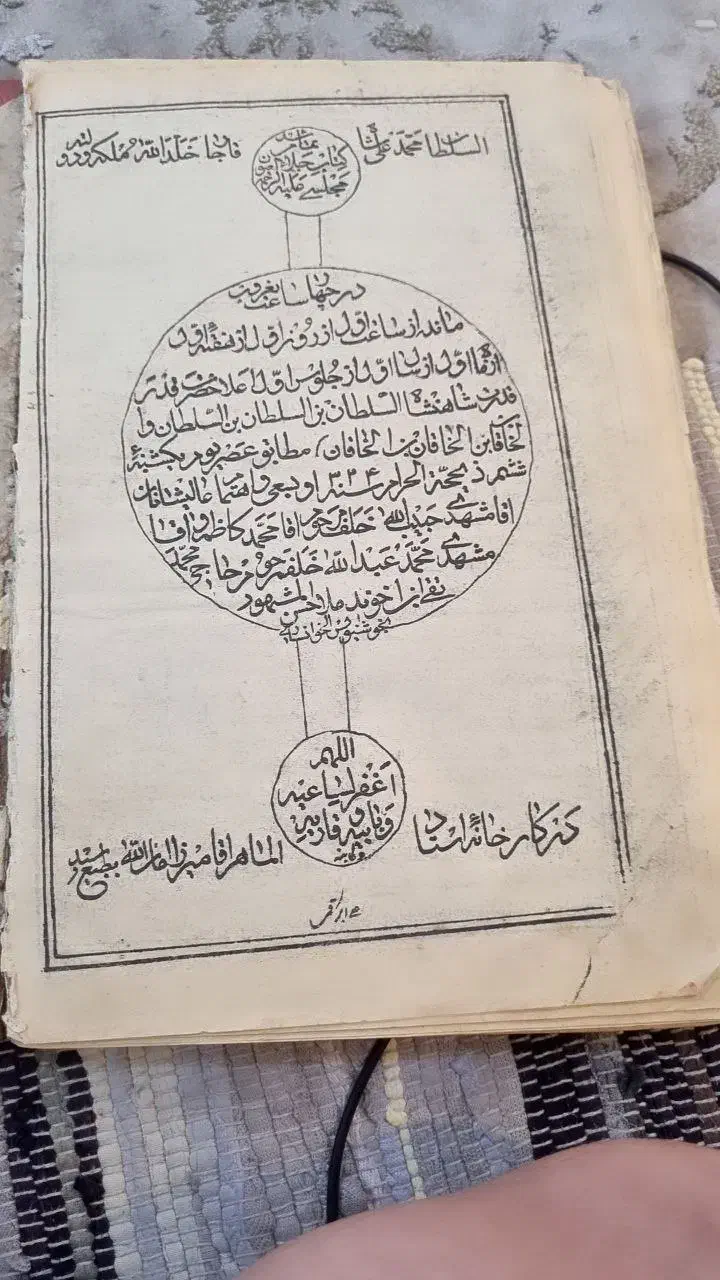 السلطان محمد علی شاه
قاجار خَلَّدَ اللهُ مُلکَهُ و دولته
تمام شد
کتاب جلاء العیون
مجلسی علیه الرحمه
در چهار ساعت بغروب
مانده از ساعت اول از روز اول از هفتهٔ اول
از ماه اول از سال اول از جلوس اول اعلاحضرت قدر
قدرت شاهنشاه السلطان بن السلطان بن السلطان و
الخاقان بن الخاقان بن الخاقان مطابق عصر یوم یکشنبهٔ
ششم ذیحجة الحرام سنه ۱۳۲۴ و بسعی و اهتمام عالیشانان
اقا مشهدی حبیب الله خلف مرحوم اقا محمد کاظم و اقا
مشهدی محمد عبد الله خلف مرحوم حاجی محمد
تقی از اخوند ملا حسن المشهور
بخوشنویس الخوانساری
اللهم
اغفر لساعیه
و بانیه و قاریه
و کاتبه
در کارخانهٔ استاد
الماهر اقا میرزا امان الله بطبع رسید